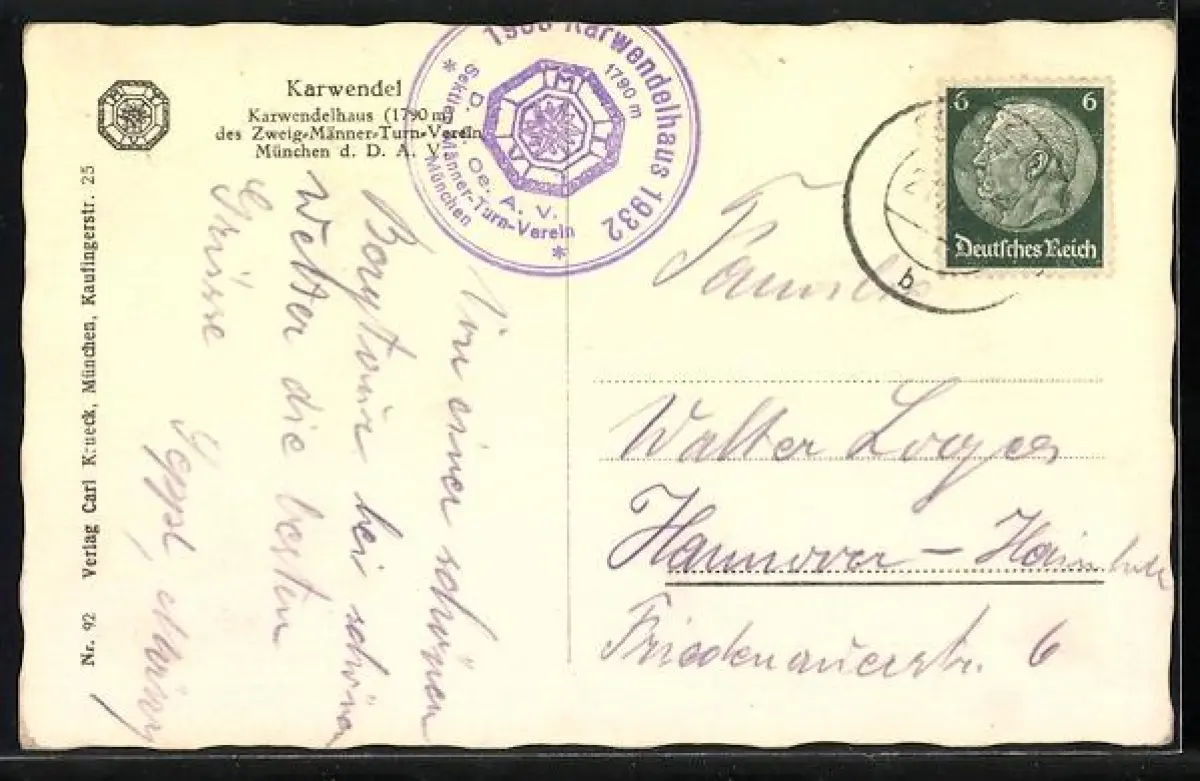 Karwendel
Karwendelhaus (1790 m)
des Zweig-Männer-Turn-Verein
München d. D. A. V.
Nr. 92 Verlag Carl Krueck, München, Kaufingerstr. 25
1908 Karwendelhaus 1932
1790 m
D. u. Oe. A. V.
Sektion Männer-Turn-Verein
München
M T V
6 6
Deutsches Reich
b
Von einer schönen
Bergtour bei schönem
Wetter die besten
Grüsse
Familie
Walter
Hannover - Hainholz
Friedenauerstr. 6